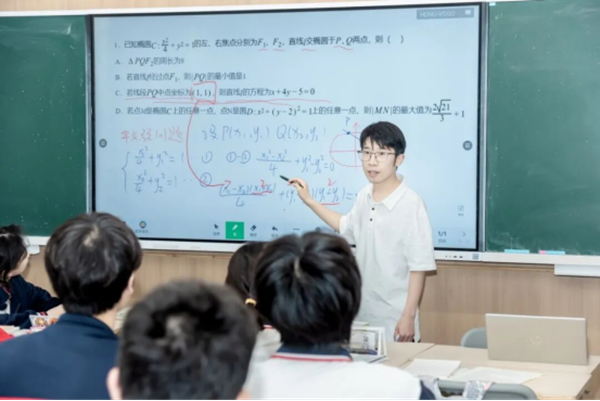 1. 已知椭圆C: x²/4 + y² = 1的左、右焦点分别为F₁, F₂, 直线l交椭圆于P, Q两点, 则 ( )
A. △PQF₂的周长为8
B. 若直线l经过点F₁, 则|PQ|的最小值是1
C. 若线段PQ中点坐标为(1,1), 则直线l的方程为x+4y-5=0
D. 若点M是椭圆C上的任意一点, 点N是圆D: x²+(y-2)²=1上的任意一点, 则|MN|的最大值为2√21/3+1
设P(x₁,y₁) Q(x₂,y₂)
x₁²/4 + y₁² = 1 ①
x₂²/4 + y₂² = 1 ②
①-② x₁²-x₂²/4 + y₁²-y₂²=0
1/1